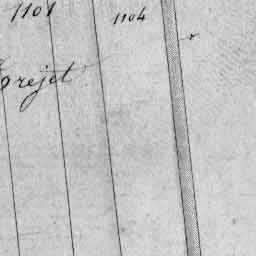 1101
1104
projet